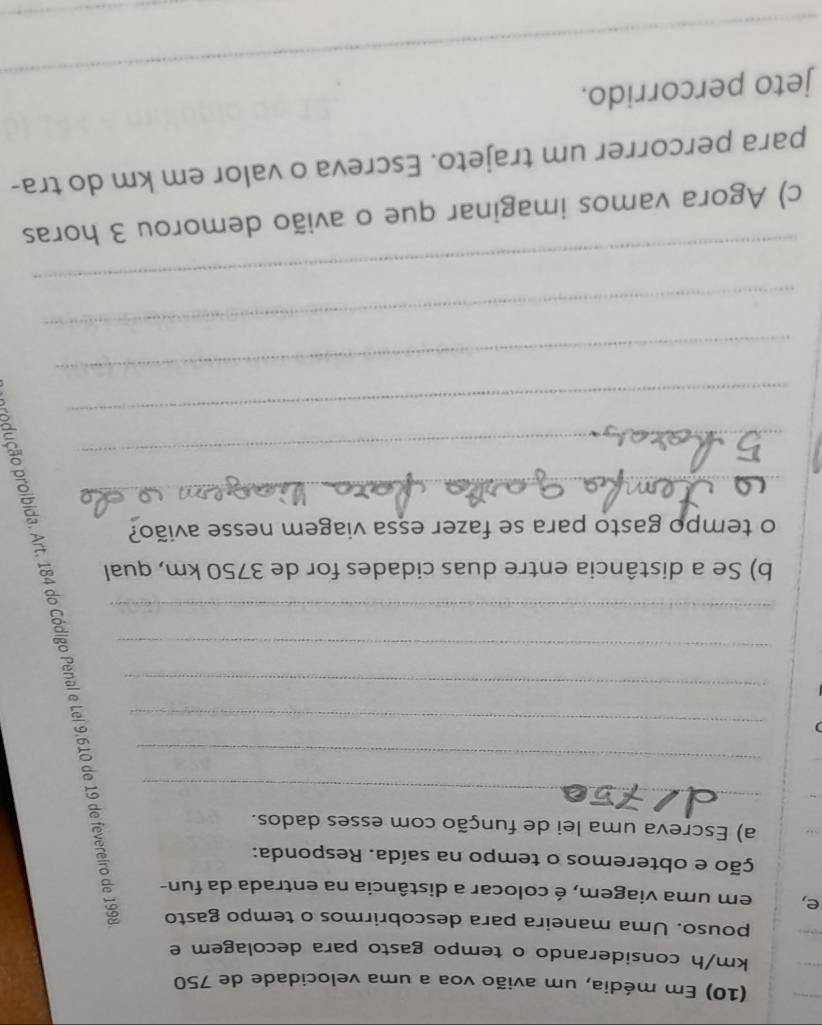 (10) Em média, um avião voa a uma velocidade de 750
km/h considerando o tempo gasto para decolagem e
pouso. Uma maneira para descobrirmos o tempo gasto
em uma viagem, é colocar a distância na entrada da fun-
ção e obteremos o tempo na saída. Responda:
a) Escreva uma lei de função com esses dados.
d/750
b) Se a distância entre duas cidades for de 3750 km, qual
o tempo gasto para se fazer essa viagem nesse avião?
o tempo gasto para viagem é de
5 horas.
c) Agora vamos imaginar que o avião demorou 3 horas
para percorrer um trajeto. Escreva o valor em km do tra-
jeto percorrido.
e,
produção proibida. Art. 184 do Código Penal e Lei 9.610 de 19 de fevereiro de 1998.